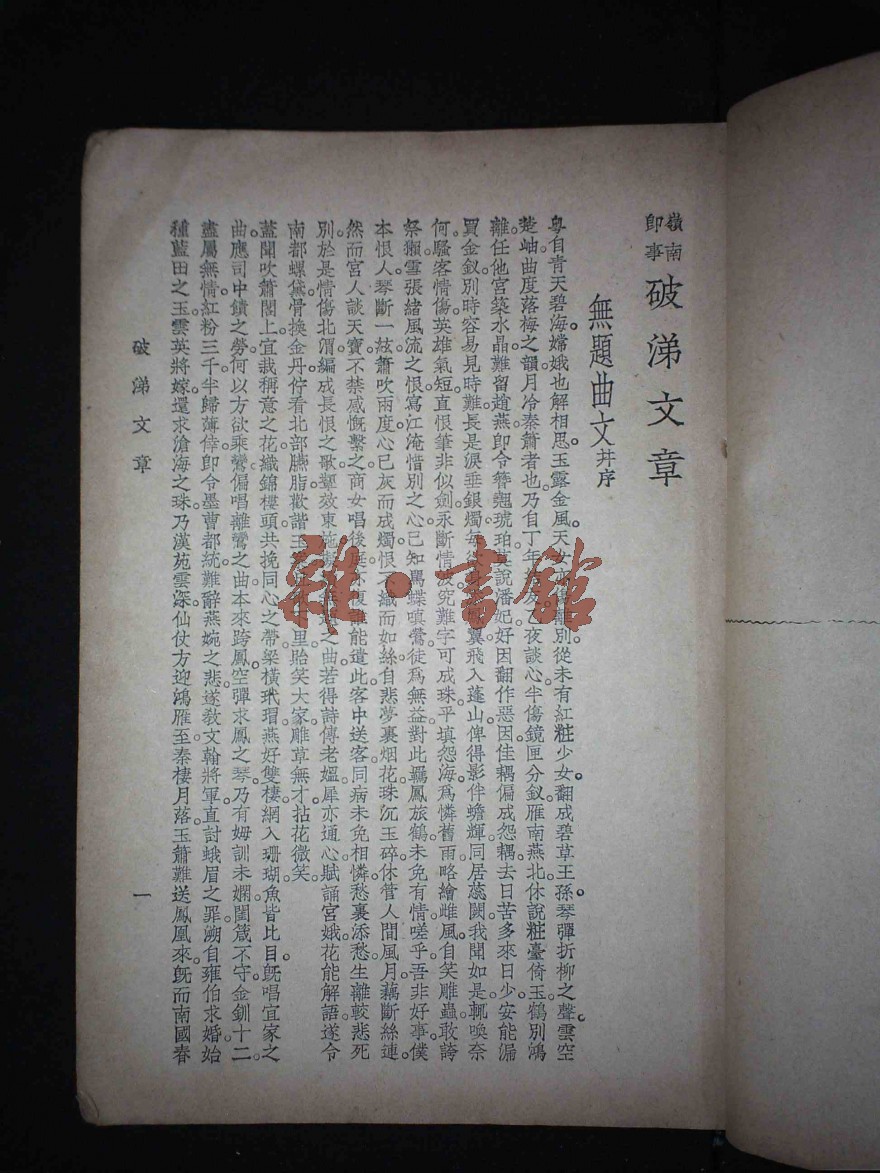 嶺南即事
破涕文章
無題曲文并序
粤自青天碧海。嫦娥也解相思。玉露金風。天女亦傷離別。從未有紅粧少女。翻成碧草王孫。琴彈折柳之聲。雲空
楚岫。曲度落梅之韻。月冷秦簫者也。乃自丁年 乙夜談心。半傷鏡匣分釵。雁南燕北。休說粧臺倚玉。鶴別鴻
離。任他宮築水晶。難留趙燕。即令簪翹琥珀。莫說潘妃。好因翻作惡因。佳耦偏成怨耦。去日苦多。來日少。安能漏
買金釵。別時容易見時難。長是淚垂銀燭。每 翼飛入蓬山。俾得影伴蟾輝。同居蕊闕。我聞如是。輒喚奈
何。騷客情傷。英雄氣短。直恨筆非似劍。永斷情 究難字可成珠。平填怨海。爲憐舊雨。略繪雌風。自笑雕蟲。敢誇
祭獺。雪張緒風流之恨。寫江淹惜別之心。已知罵蝶嗔鶯。徒爲無益。對此羈鳳旅鶴。未免有情。嗟乎。吾非好事。僕
本恨人。琴斷一絃。簫吹兩度。心已灰而成燭。恨 織而如絲。自悲夢裏烟花。珠沉玉碎。休管人間風月。藕斷絲連。
然而宮人談天寶。不禁感慨繫之。商女唱後庭。 復誰能遣此。客中送客。同病未免相憐。愁裏添愁。生離較悲死
別。於是情傷北渭。編成長恨之歌。顰效東施。 之曲。若得詩傳老媼。犀亦通心。賦誦宮娥。花能解語。遂令
南都螺黛。骨換金丹。佇看北部臙脂。歡諧玉 里。貽笑大家。雕草無才。拈花微笑。
蓋聞吹簫閣上。宜栽稱意之花。織錦樓頭。共挽同心之帶。梁橫玳瑁。燕好雙棲。網入珊瑚。魚皆比目。既唱宜家之
曲。應司中饋之勞。何以方欲乘鸞。偏唱離鸞之曲。本來跨鳳。空彈求鳳之琴。乃有姆訓未嫻。閨箴不守。金釧十二
盡屬無情。紅粉三千。半歸薄倖。即令墨曹都統。難辭燕婉之悲。遂敎文翰將軍。直討蛾眉之罪。溯自雍伯求婚。始
種藍田之玉。雲英將嫁。還求滄海之珠。乃漢苑雲深。仙仗方迎鴻雁至。秦棲月落。玉簫難送鳳凰來。既而南國春
破涕文章
一
雜·書館